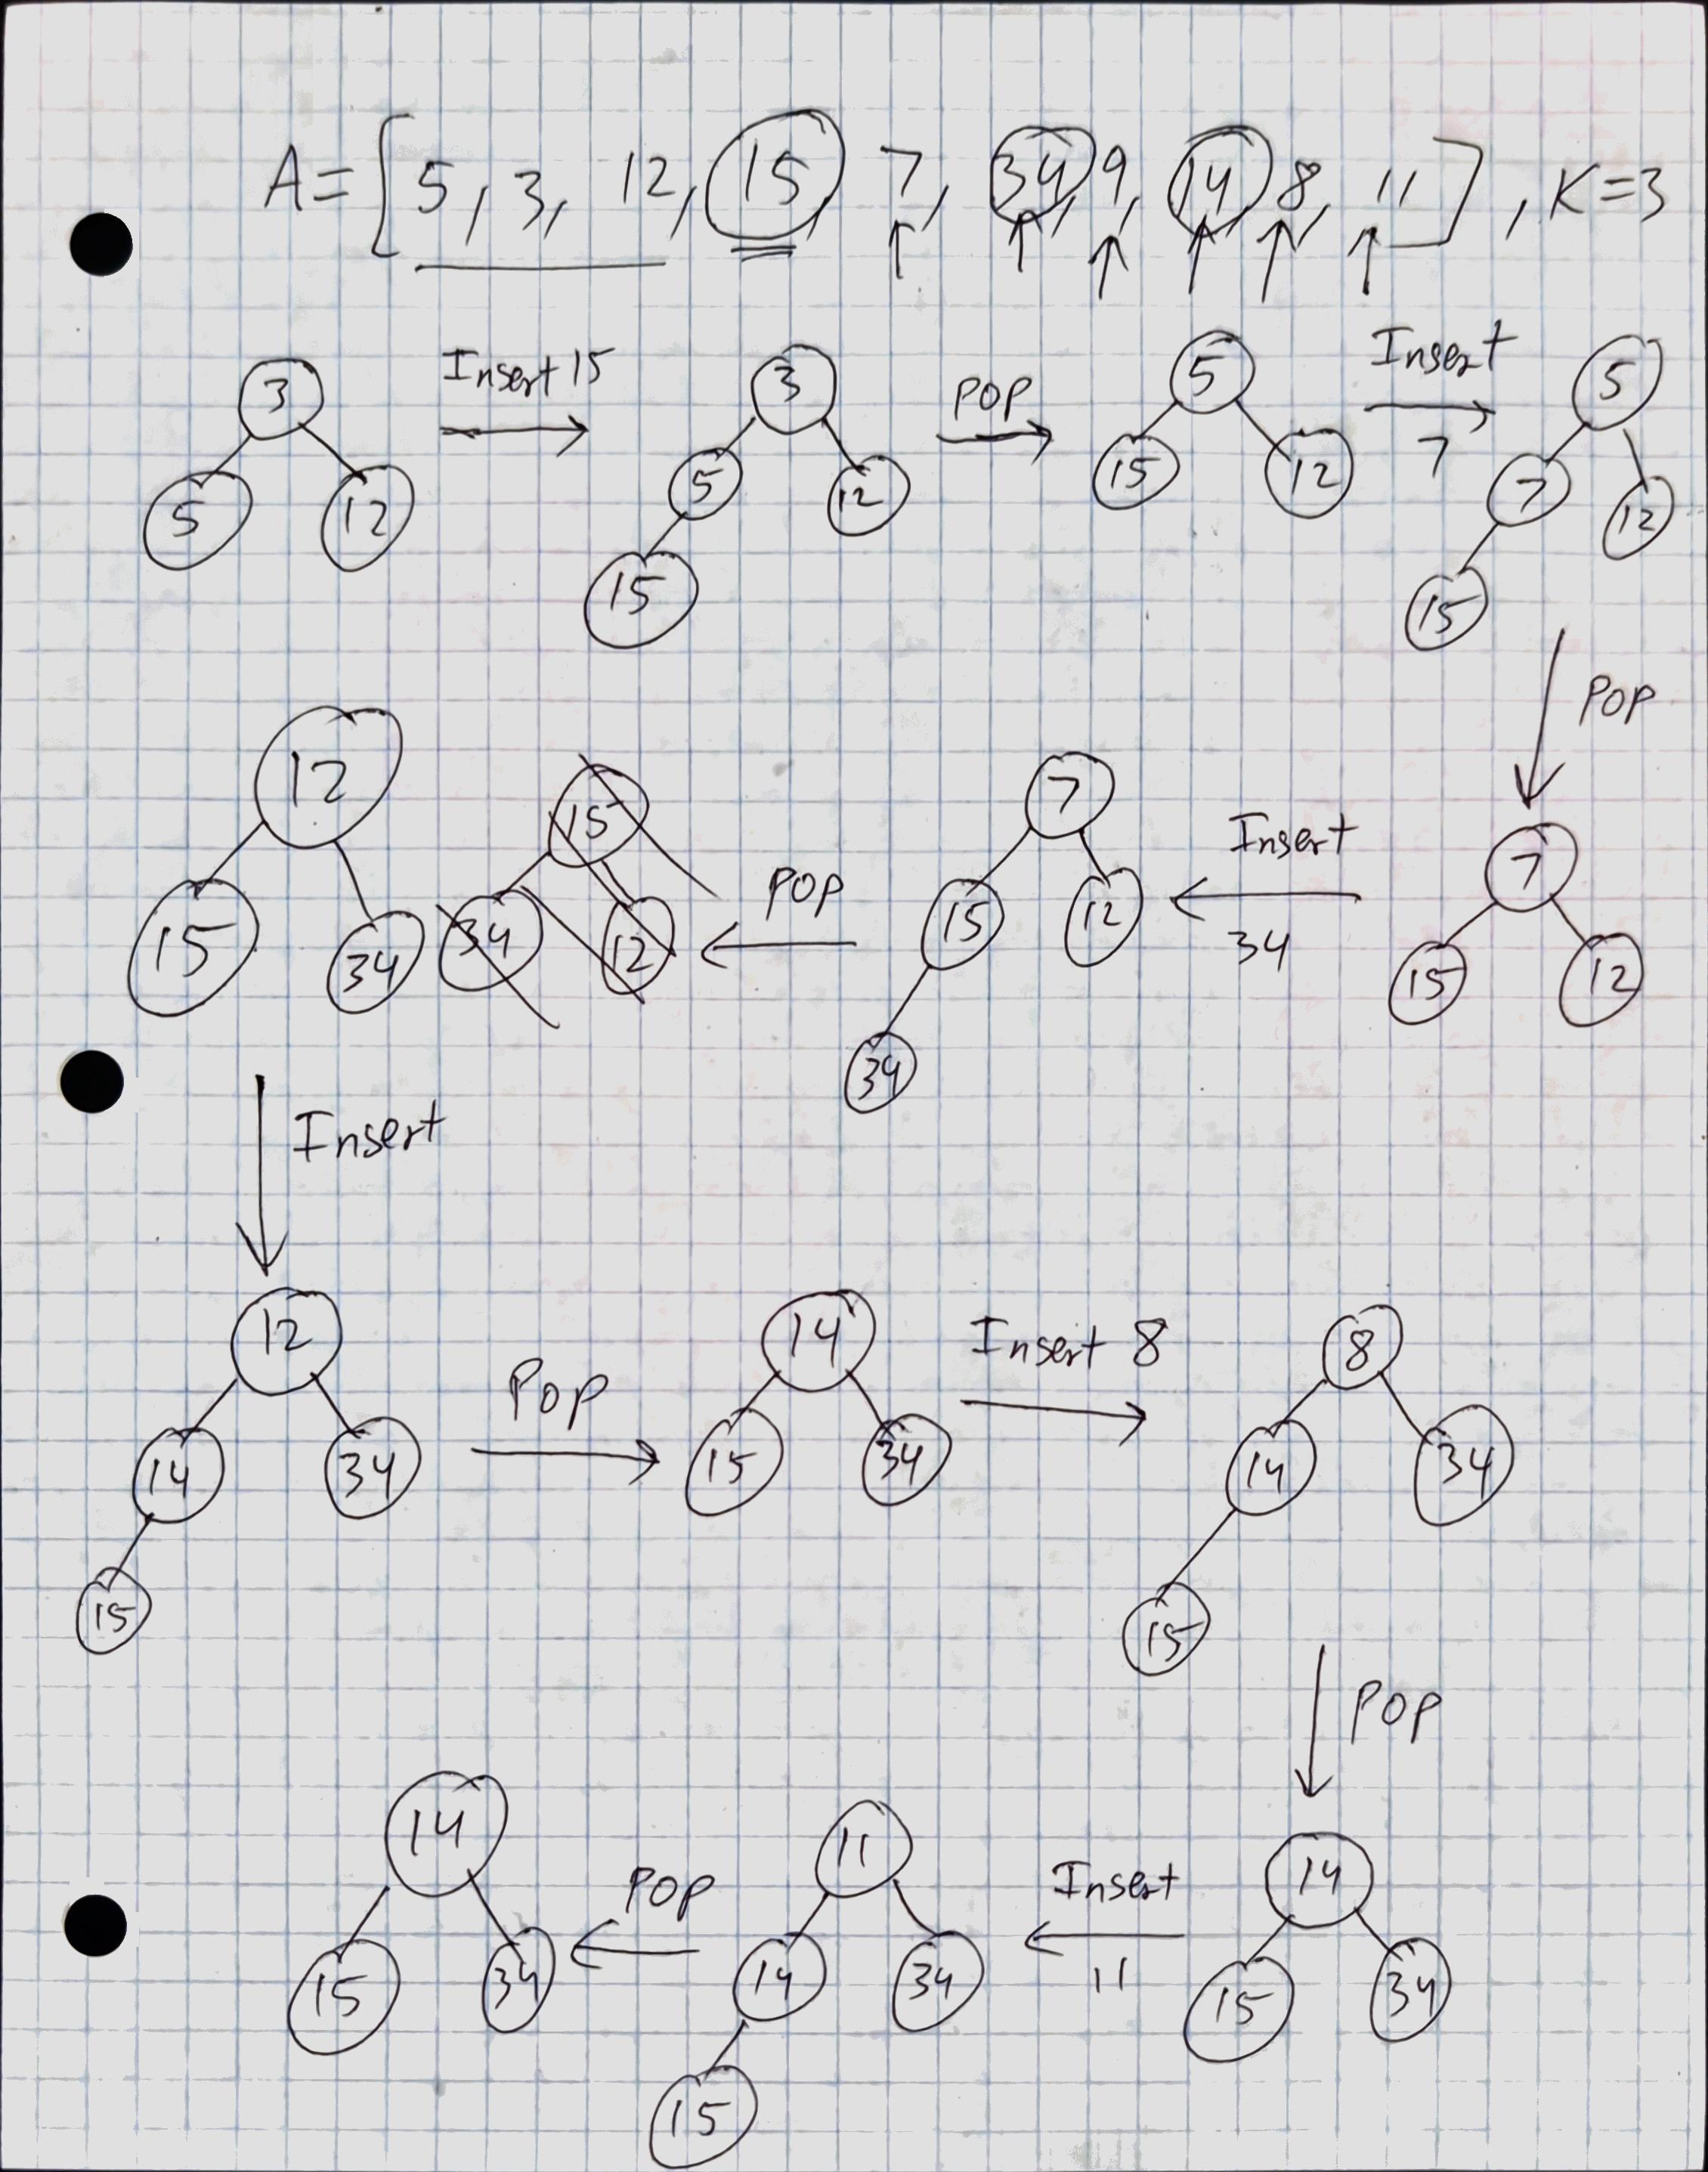 A = [5, 3, 12, 15, 7, 34, 9, 14, 8, 11], K=3
3
5
12
Insert 15
3
5
12
15
POP
5
15
12
Insert
7
5
7
12
15
POP
7
15
12
Insert
34
7
15
12
34
POP
15
34
12
12
15
34
Insert
12
14
34
15
Pop
14
15
34
Insert 8
8
14
34
15
POP
14
15
34
Insert
11
11
14
34
15
POP
14
15
34